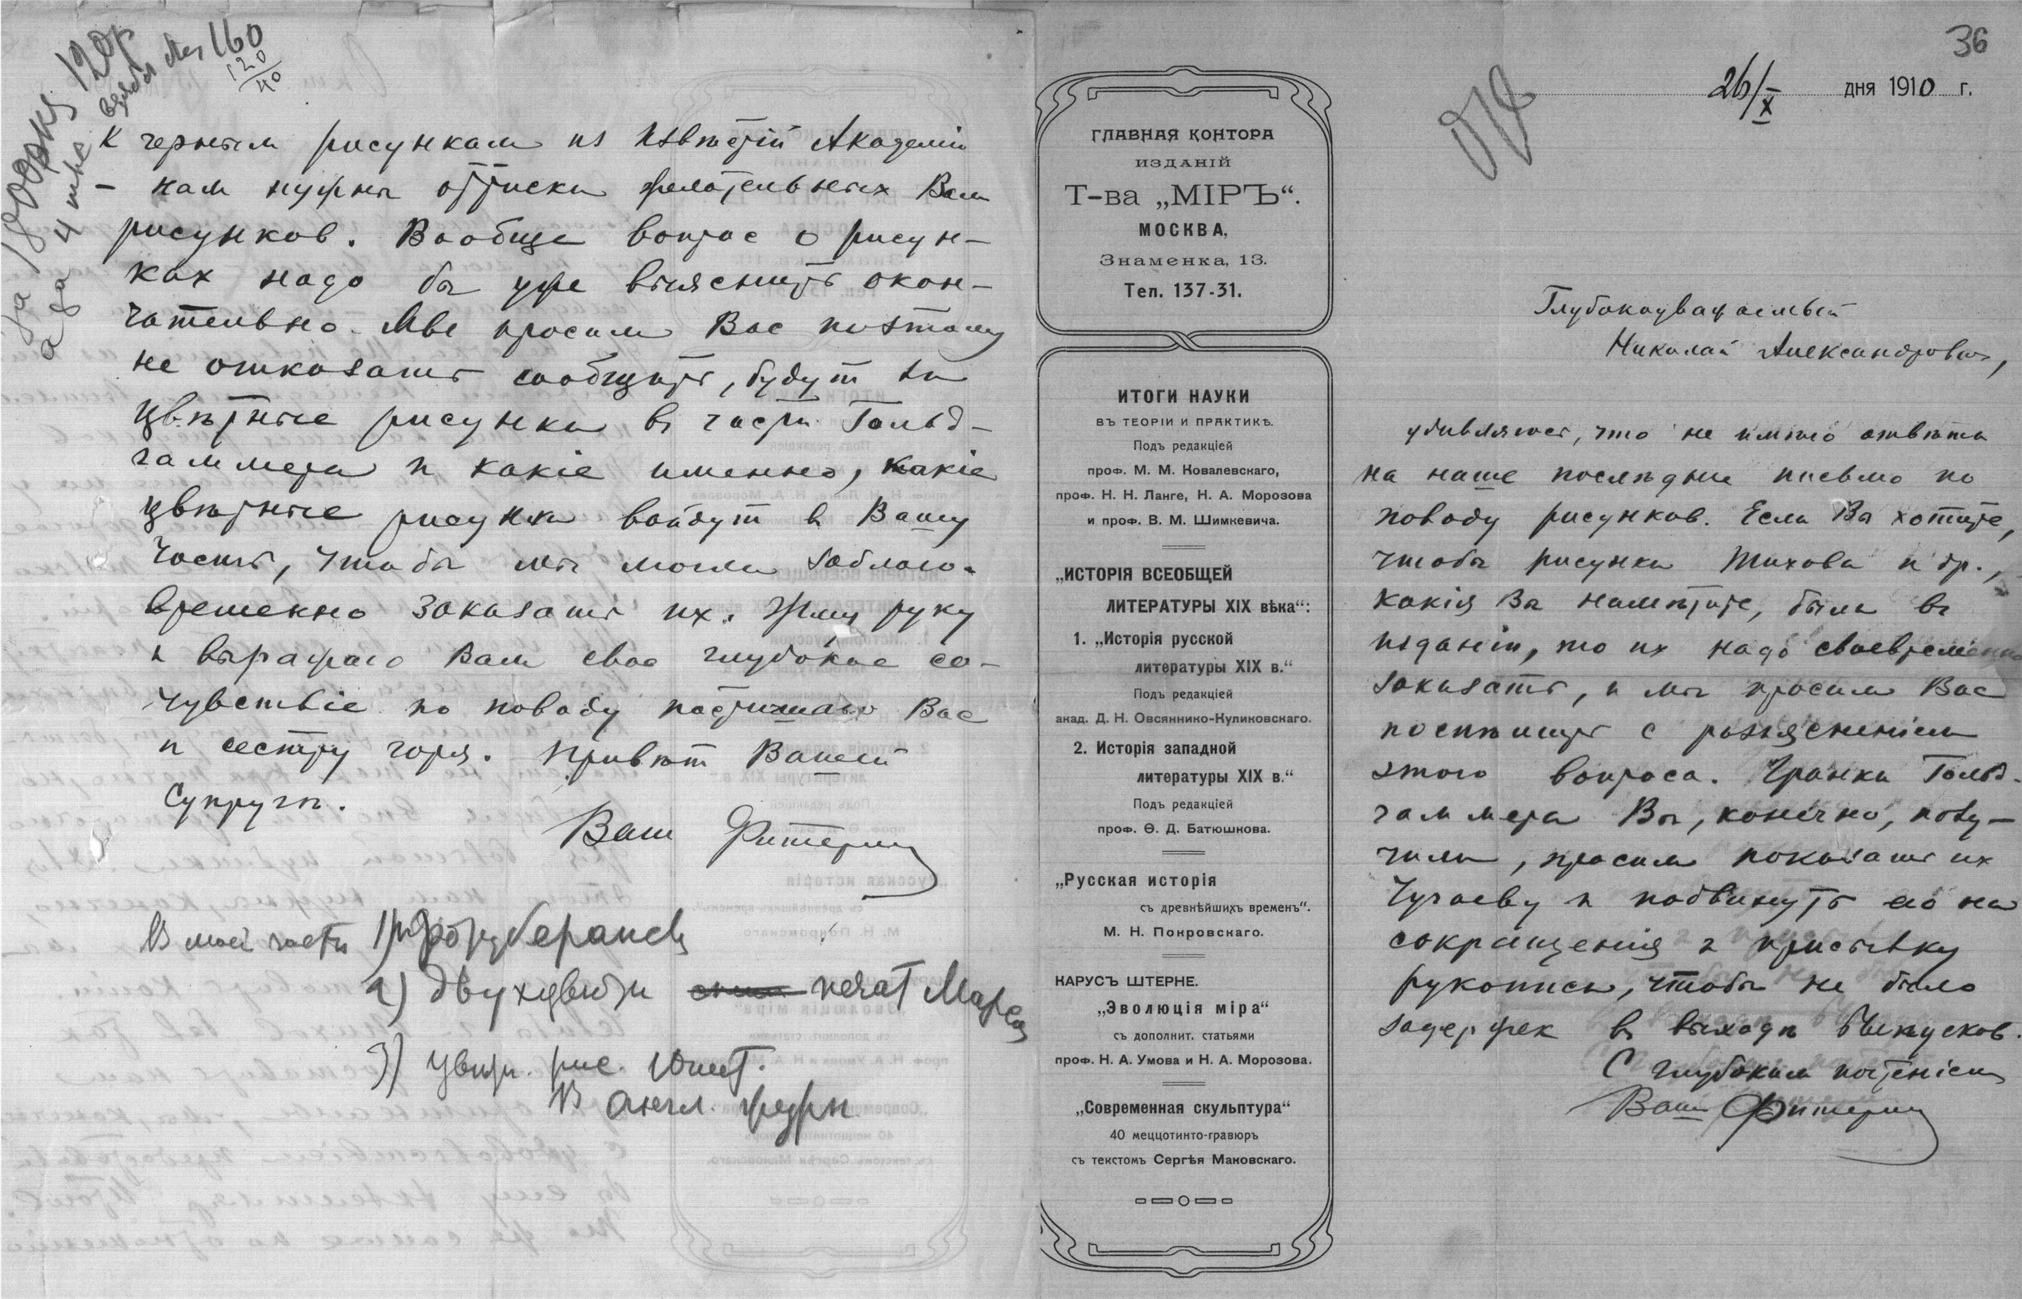 за 180 экз 120р
а за 4 т
160
120
40
К черным рисункам из Извѣстій Академіи
— нам нужны оттиски желательных Вам
рисунков. Вообще вопрос о рисун-
ках надо бы уже выяснить окон-
чательно. Мы просим Вас поэтому
не отказать сообщить, будут ли
цвѣтные рисунки в части Гольд-
гаммера и какіе именно, какіе
цвѣтные рисунки войдут в Вашу
часть, чтобы мы могли заблаго-
временно заказать их. Жму руку
и выражаю Вам свое глубокое со-
чувствіе по поводу постигшаго Вас
и сестру горя. Привѣт Вашей
супругѣ.
Ваш
В моей части 1) протуберансы
2) двухцвѣтн печат Марса
3) цвѣтн. рис. Юпит.
В англ. журн
36
26/X дня 1910 г.
ГЛАВНАЯ КОНТОРА
ИЗДАНІЙ
Т-ва „МІРЪ“.
МОСКВА,
Знаменка, 13.
Тел. 137-31.
ИТОГИ НАУКИ
ВЪ ТЕОРІИ И ПРАКТИКѢ.
Подъ редакціей
проф. М. М. Ковалевскаго,
проф. Н. Н. Ланге, Н. А. Морозова
и проф. В. М. Шимкевича.
„ИСТОРІЯ ВСЕОБЩЕЙ
ЛИТЕРАТУРЫ XIX вѣка“:
1. „Исторія русской
литературы XIX в.“
Подъ редакціей
акад. Д. Н. Овсяннико-Куликовскаго.
2. Исторія западной
литературы XIX в.“
Подъ редакціей
проф. Ѳ. Д. Батюшкова.
„Русская исторія
съ древнѣйшихъ временъ“.
М. Н. Покровскаго.
КАРУСЪ ШТЕРНЕ.
„Эволюція міра“
съ дополнит. статьями
проф. Н. А. Умова и Н. А. Морозова.
„Современная скульптура“
40 меццотинто-гравюръ
съ текстомъ Сергѣя Маковскаго.
Глубокоуважаемый
Николай Александрович,
удивляюсь, что не имѣю отвѣта
на наше послѣднее письмо по
поводу рисунков. Если Вы хотите,
чтобы рисунки Тихова и др.,
какія Вы намѣтите, были в
изданіи, то их надо своевременно
заказать, и мы просим Вас
поспѣшить с разъясненіем
этого вопроса. Гранки Гольд-
гаммера Вы, конечно, полу-
чили, просим показать их
и подвинуть его на
сокращенія и присылку
рукописи, чтобы не было
задержек в выходѣ выпусков.
С глубоким почтеніем
Ваш